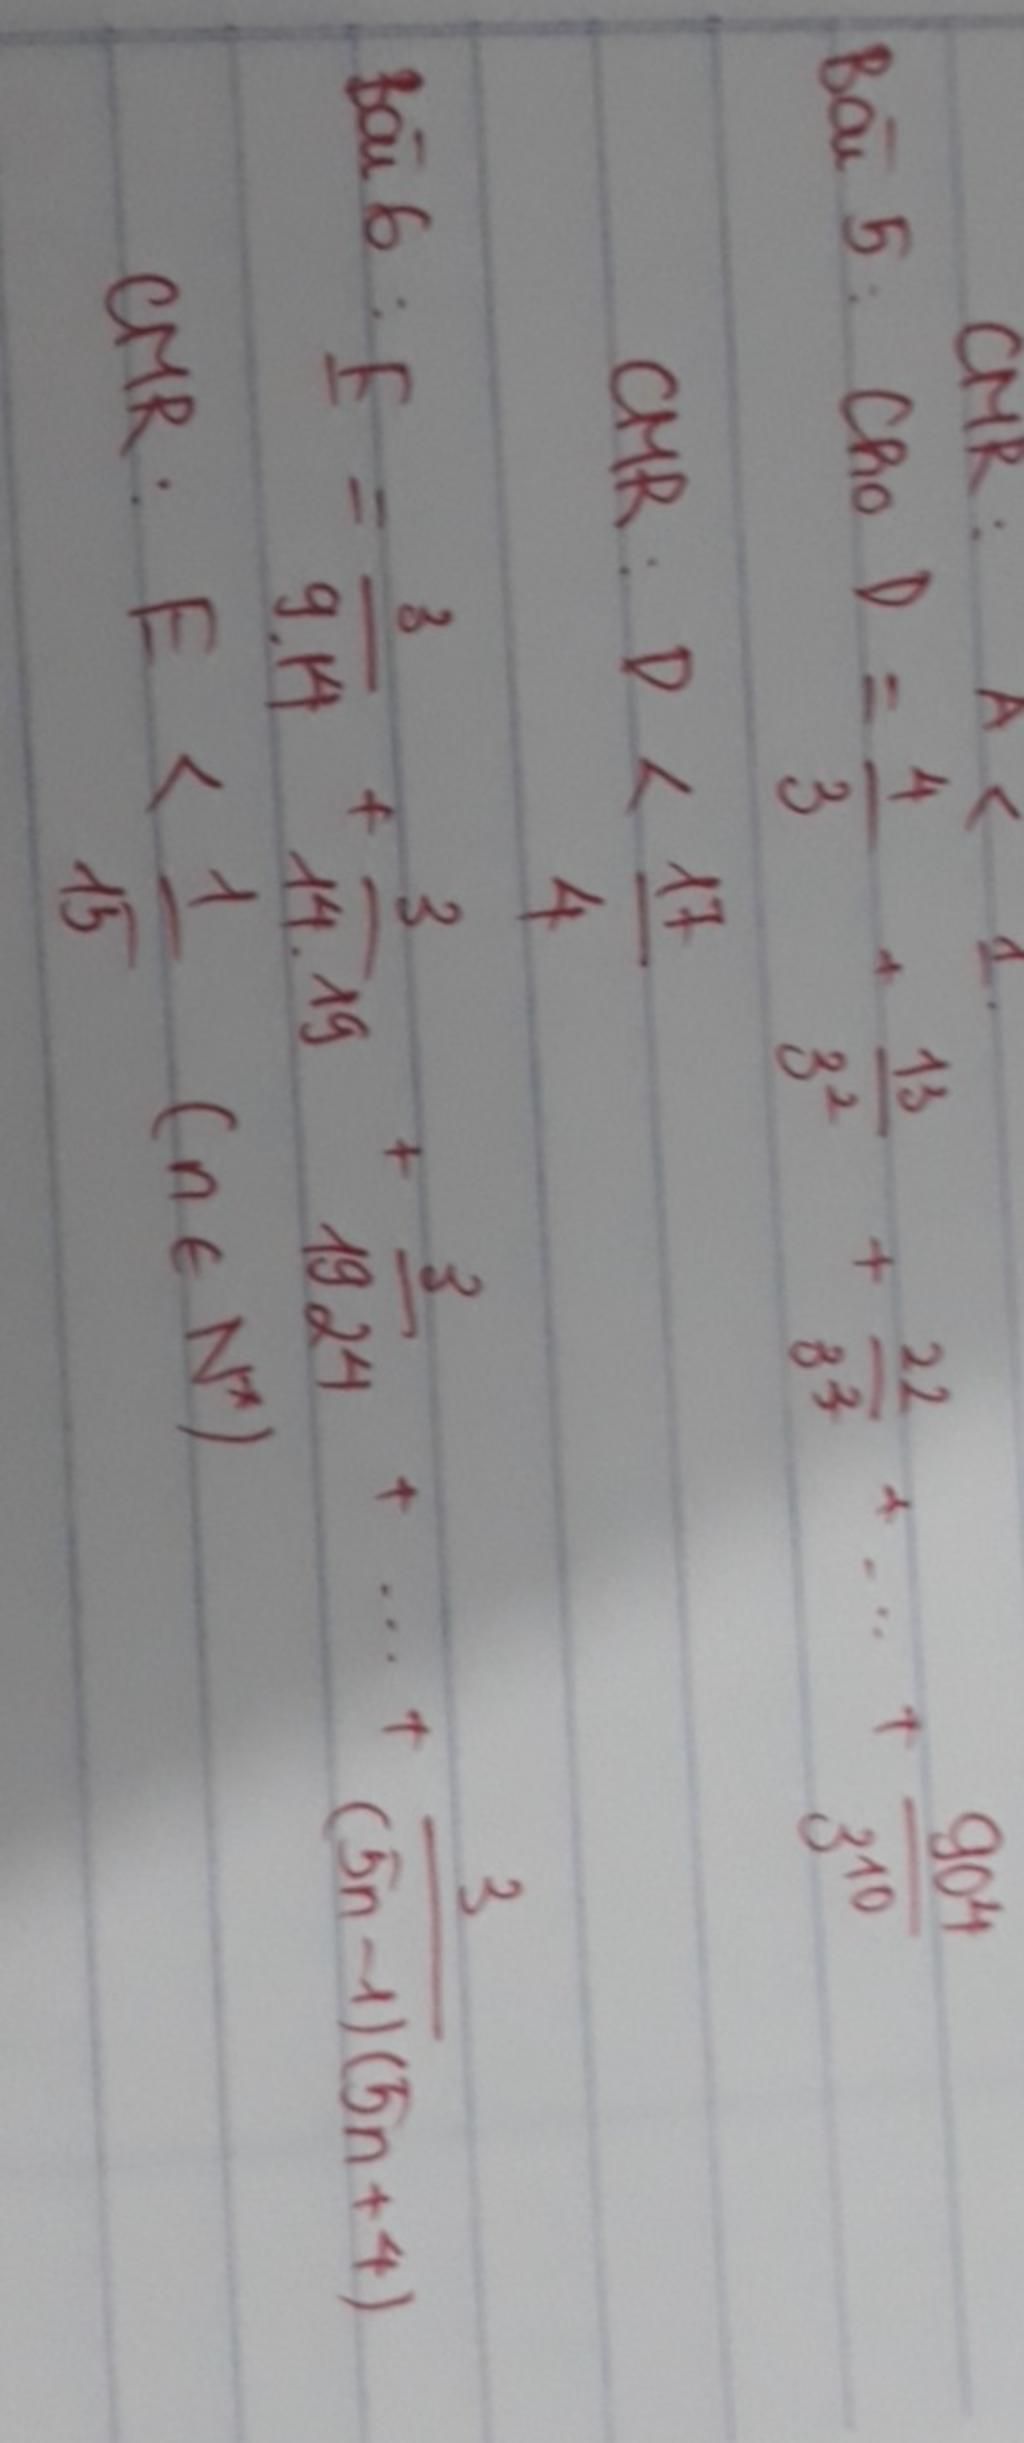 CMR : A < 1.
Bài 5 : Cho D = 4/3 + 13/3² + 22/3³ + ... + 904/3¹⁰
CMR : D < 17/4
Bài 6 : E = 3/9.14 + 3/14.19 + 3/19.24 + ... + 3/(5n-1)(5n+4)
CMR : E < 1/15 (n ∈ N*)